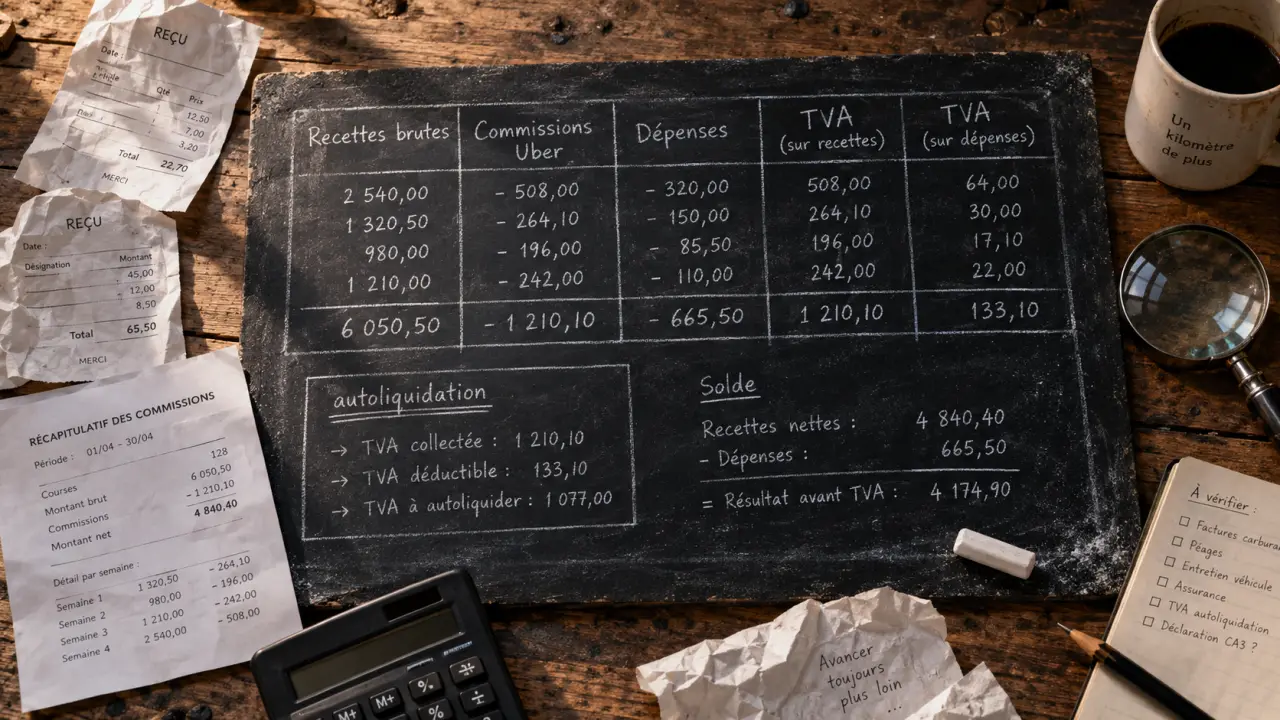 REÇU
Date :
Qté Prix
12,50
7,00
3,20
Total 22,70
MERCI
REÇU
Date :
Désignation Montant
45,00
12,00
8,50
Total 65,50
MERCI
RÉCAPITULATIF DES COMMISSIONS
Période : 01/04 – 30/04
Courses 128
Montant brut 6 050,50
Commissions - 1 210,10
Montant net 4 840,40
Détail par semaine :
Semaine 1 1 320,50 - 264,10
Semaine 2 980,00 - 196,00
Semaine 3 1 210,00 - 242,00
Semaine 4 2 540,00 - 508,00
Recettes brutes Commissions Uber Dépenses TVA (sur recettes) TVA (sur dépenses)
2 540,00 - 508,00 - 320,00 508,00 64,00
1 320,50 - 264,10 - 150,00 264,10 30,00
980,00 - 196,00 - 85,50 196,00 17,10
1 210,00 - 242,00 - 110,00 242,00 22,00
6 050,50 - 1 210,10 - 665,50 1 210,10 133,10
autoliquidation
→ TVA collectée : 1 210,10
→ TVA déductible : 133,10
→ TVA à autoliquider : 1 077,00
Solde
Recettes nettes : 4 840,40
- Dépenses : 665,50
= Résultat avant TVA : 4 174,90
Un
kilomètre
de plus
À vérifier :
Factures carbura
Péages
Entretien véhicule
Assurance
TVA autoliquidation
Déclaration CA3 ?
Avancer
toujours
plus loin
...
M+ % 
M+ % ÷